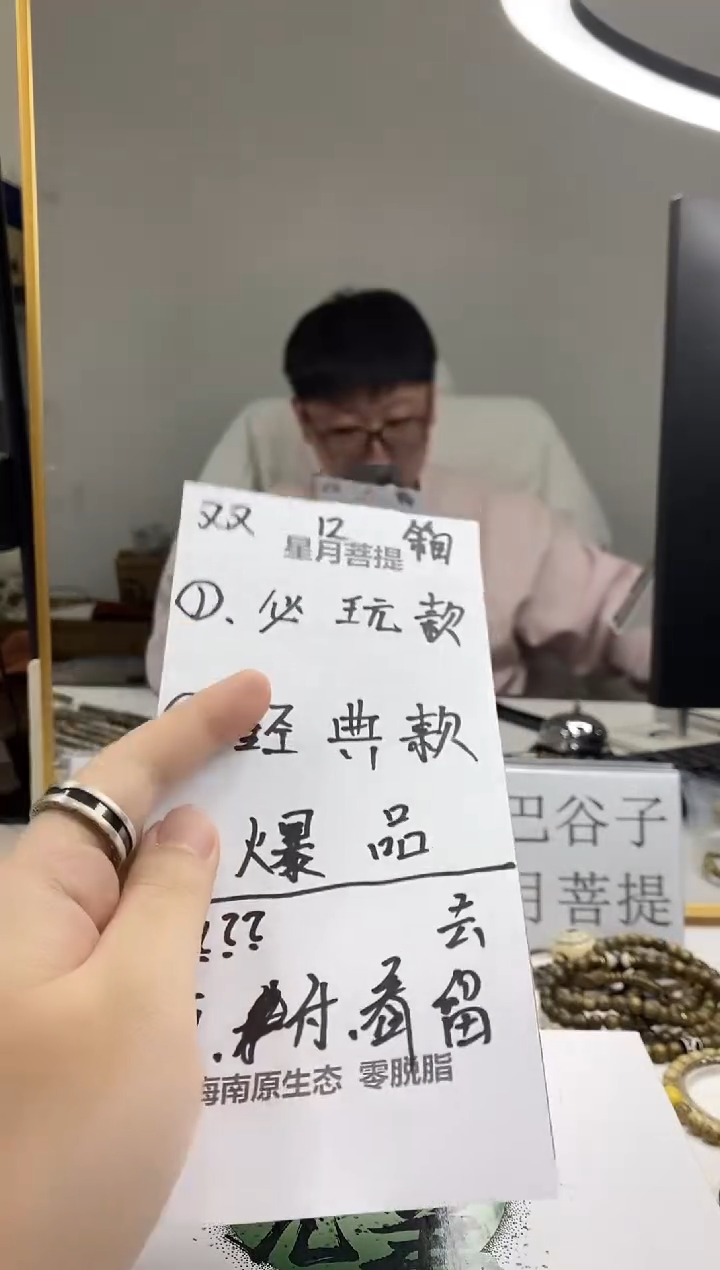 双 12 箱
星月菩提
①、必玩款
经典款
爆品
??? 去
.射.看留
海南原生态 零脱脂
巴谷子
月菩提